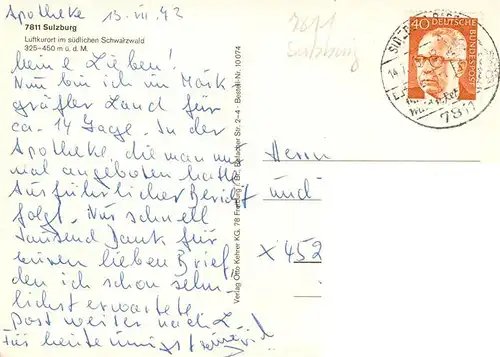 Apotheke 13. VII. 73
7811 Sulzburg
Luftkurort im südlichen Schwarzwald
325–450 m ü. d. M.
Meine Lieben!
Nun bin ich im Mark-
gräfler Land für
ca. 14 Tage. In der
Apotheke, die man mir
mal angeboten hatte.
Ausführlicher Bericht
folgt. Nur schnell
tausend Dank für
euren lieben Brief,
den ich schon sehn-
lichst erwartete.
Post weiter nach L.
Für heute innigst
7811
Sulzburg
40 DEUTSCHE
BUNDESPOST
7811
Herrn
und
x 452
Verlag Otto Kehrer KG, 78 Freiburg / Br., Bötzinger Str. 2–4 · Bestell-Nr. 10 074